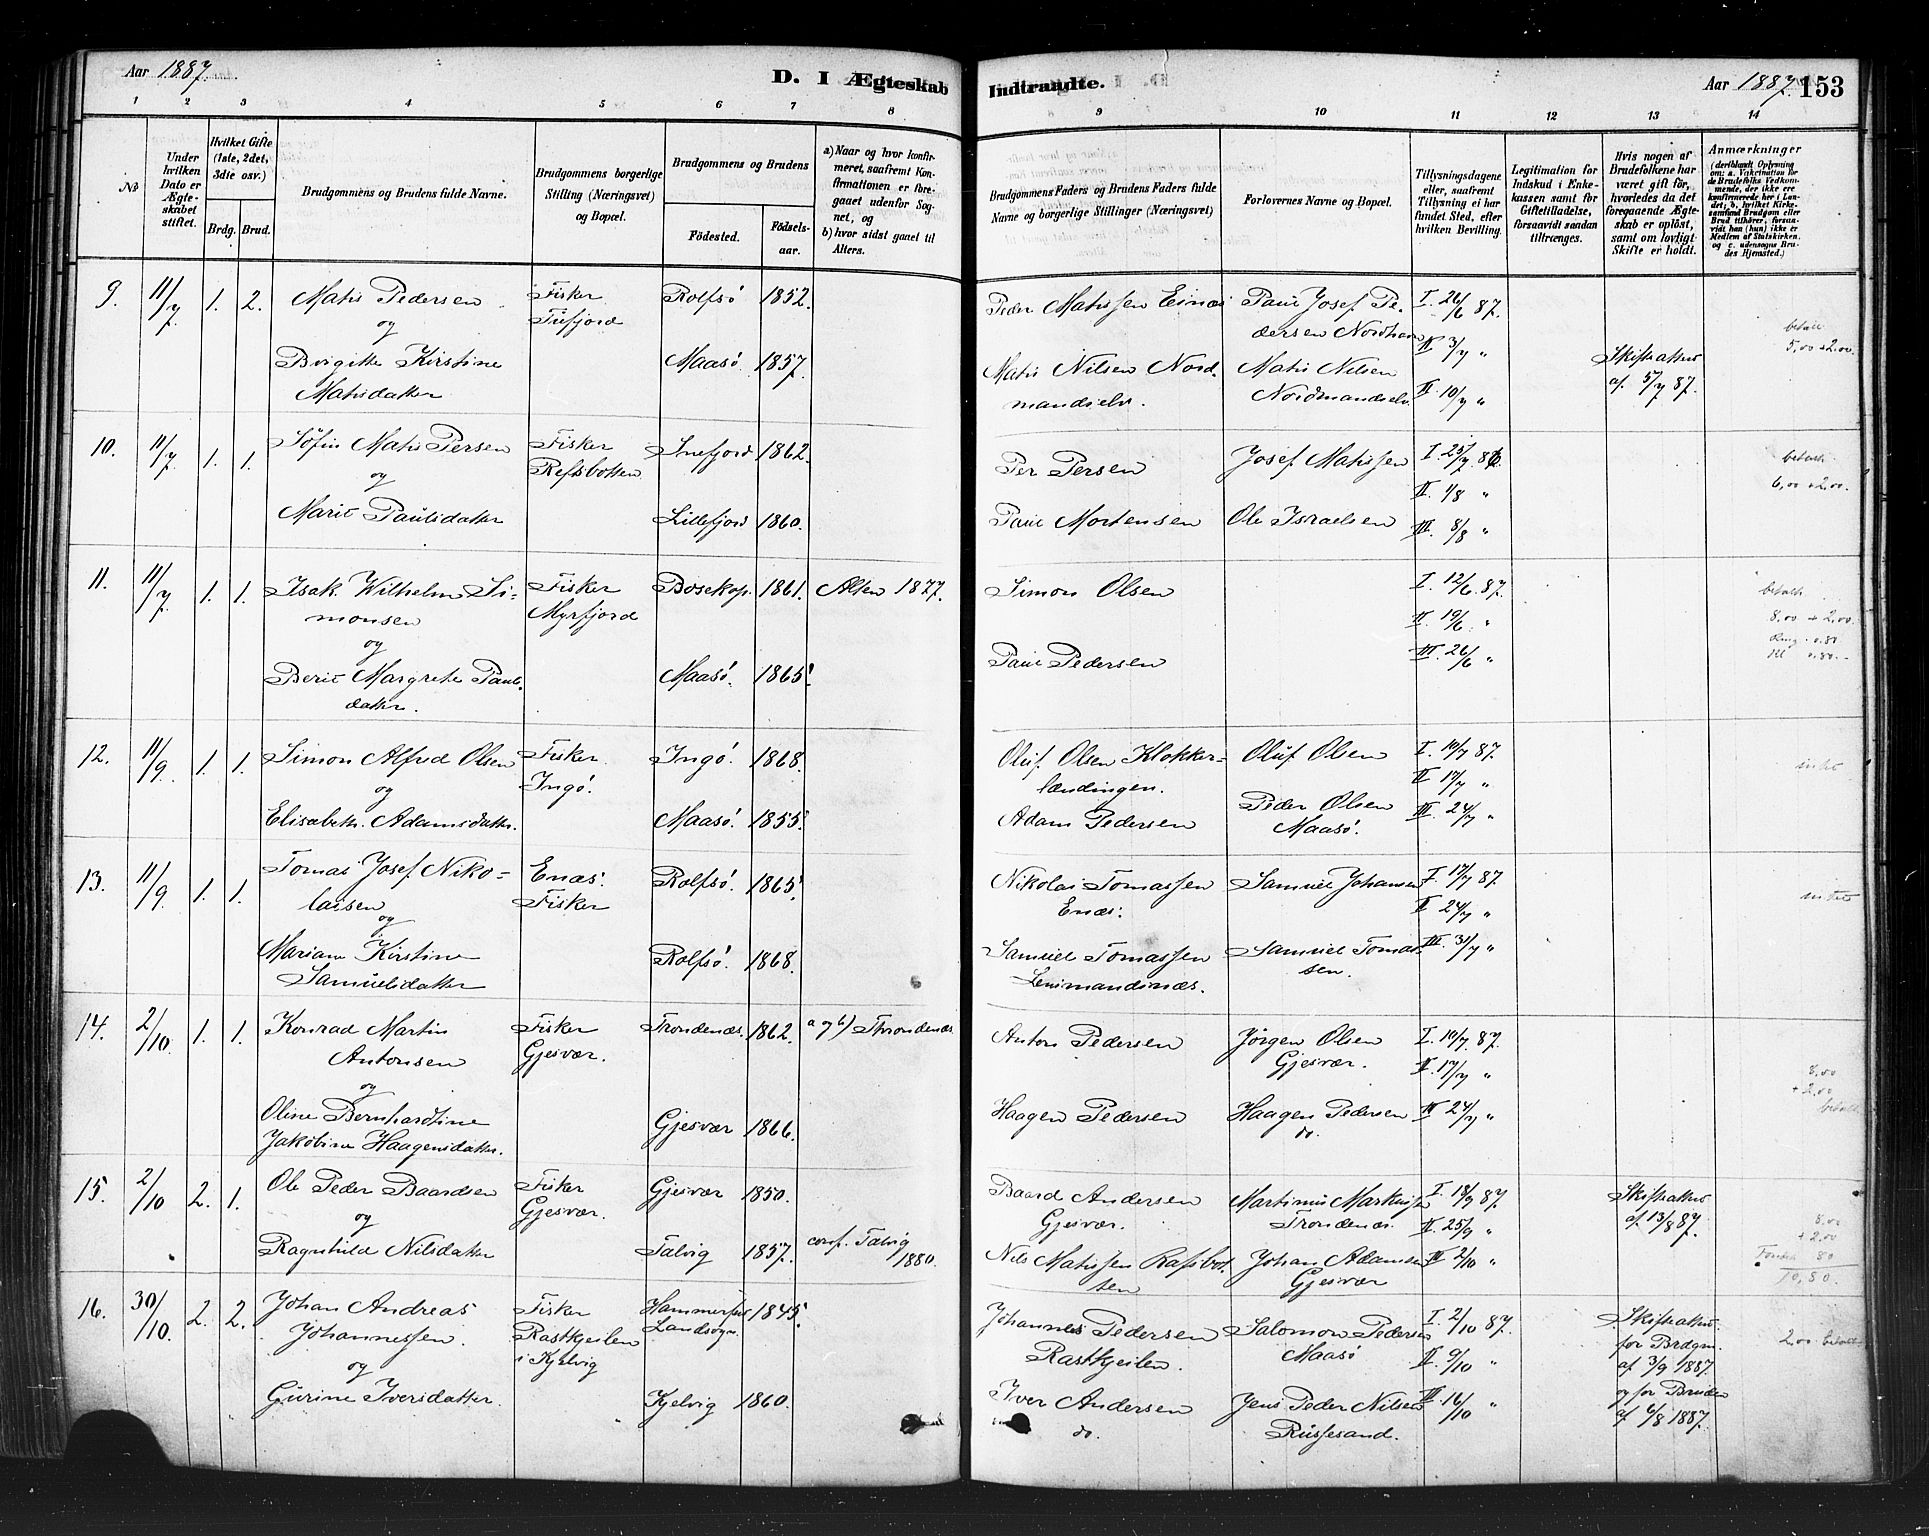 Aar 1887.
D. I Ægteskab
Indtraadte.
Aar 1887.
153
1 2 3 4 5 6 7 8
9 10 11 12 13 14
№
Under hvilken Dato er Ægteskabet stiftet.
Hvilket Gifte (1ste, 2det, 3die osv.)
Brdg. Brud.
Brudgommens og Brudens fulde Navne.
Brudgommens borgerlige Stilling (Næringsvei) og Bopæl.
Brudgommens og Brudens
Fødested.
Fødselsaar.
a) Naar og hvor konfirmeret, saafremt Konfirmationen er foregaaet udenfor Sognet, og
b) hvor sidst gaaet til Alters.
Brudgommens Faders og Brudens Faders fulde Navne og borgerlige Stillinger (Næringsvei)
Forlovernes Navne og Bopæl.
Tillysningsdagene eller, saafremt Tillysning ei har fundet Sted, efter hvilken Bevilling.
Legitimation for Indskud i Enkekassen samt for Giftetilladelse, forsaavidt saadan tiltrænges.
Hvis nogen af Brudefolkene har været gift før, hvorledes da det foregaaende Ægteskab er opløst, samt om lovligt Skifte er holdt.
Anmærkninger
(deriblandt Oplysning om: a. Vaccination for de Brudefolks Vedkommende, der ikke ere konfirmerede her i Landet; b. hvilket Kirkesamfund Brudgom eller Brud tilhører, forsaavidt han (hun) ikke er Medlem af Statskirken, og c. udensogns Brudes Hjemsted.)
9. 11/7. 1. 2. Matis Pedersen Fisker Rolfsö 1852. Peder Matissen Einæs Paul Josef Pe- I. 26/6 87.
og Tufjord dersen Nordhavn II 3/7 " betalt
Brigitte Kirstine Maasö 1857. Matis Nilsen Nord- Matis Nilsen Skifteattest 5,00 + 2,00.
Matisdatter mandselv. Nordmandselv. III. 10/7 " af. 5/7 87.
10. 11/7. 1. 1. Söfin Matis Persen Fisker Snefjord 1862. Per Persen Josef Matissen I. 25/7. 86. betalt
og Refsbotten II. 1/8 " 6,00 + 2,00.
Marit Paulsdatter Lillefjord 1860. Paul Mortensen Ole Israelsen III. 8/8 "
11. 11/7 1. 1. Isak Wilhelm Si- Fisker Bosekop. 1861. Alten 1877. Simon Olsen I. 12/6. 87. betalt
monsen Myrfjord II. 19/6. " 8,00 + 2,00
og Ring. 0.80.
Berit Margrete Pauls- Maasö. 1865. Paul Pedersen III. 26/6 " 0.80.
datter.
12. 11/9. 1. 1. Simon Alfred Olsen Fisker Ingö. 1868. Oluf Olsen Klokker- Oluf Olsen I. 10/7 87.
og Ingö. lændingen. II. 17/7 " intet
Elisabeth Adamsdatter. Maasö. 1855. Adam Pedersen Peder Olsen III. 24/7 "
Maasö.
13. 11/9. 1. 1. Tomas Josef Niko- Enæs. Rolfsö. 1865. Nikolai Tomassen Samuel Johansen I. 17/7 87.
laisen Fisker Enæs. II 24/7 " intet
og
Mariane Kirstine Rolfsö. 1868. Samuel Tomassen Samuel Tomas- III. 31/7 "
Samuelsdatter Lensmandsnæs. sen.
14. 2/10. 1. 1. Konrad Martin Fisker Trondenæs. 1862. a og b) Throndenæs. Anton Pedersen Jörgen Olsen I. 10/7. 87.
Antonsen Gjesvær. Gjesvær. II. 17/7 " 8,00
og + 2,00
Oline Bernhardtine Gjesvær 1866. Haagen Pedersen Haagen Pedersen III 24/7 " betalt
Jakobine Haagensdatter. do.
15. 2/10 2. 1. Ole Peder Baardsen Fisker Gjesvær 1850. Baard Andersen Martinus Markussen I. 18/9 87. Skifteattest
og Gjesvær. Gjesvær. Trondenæs. II. 25/9 " af. 13/8 87. 8,00
Ragnhild Nilsdatter Talvig 1857. conf. Talvig Nils Matissen Rafsbot- Johan Adamsen III 2/10 " + 2,00
1880. ten Gjesvær 80
10,80.
16. 30/10. 2. 2. Johan Andreas Fisker Hammerfest 1845. Johannes Pedersen Salomon Pedersen I. 2/10 87. Skifteattest.
Johannessen. Rastkjeilen Landsogn. Rastkjeilen. Maasö II. 9/10 " for Brdgm. 2,00 betalt
og i Kjelvig af 3/9 1887.
Gurine Iversdatter. Kjelvig 1860. Iver Andersen Jens Peder Nilsen III. 16/10 " og for Bruden
do. Russesand. af 6/8 1887.